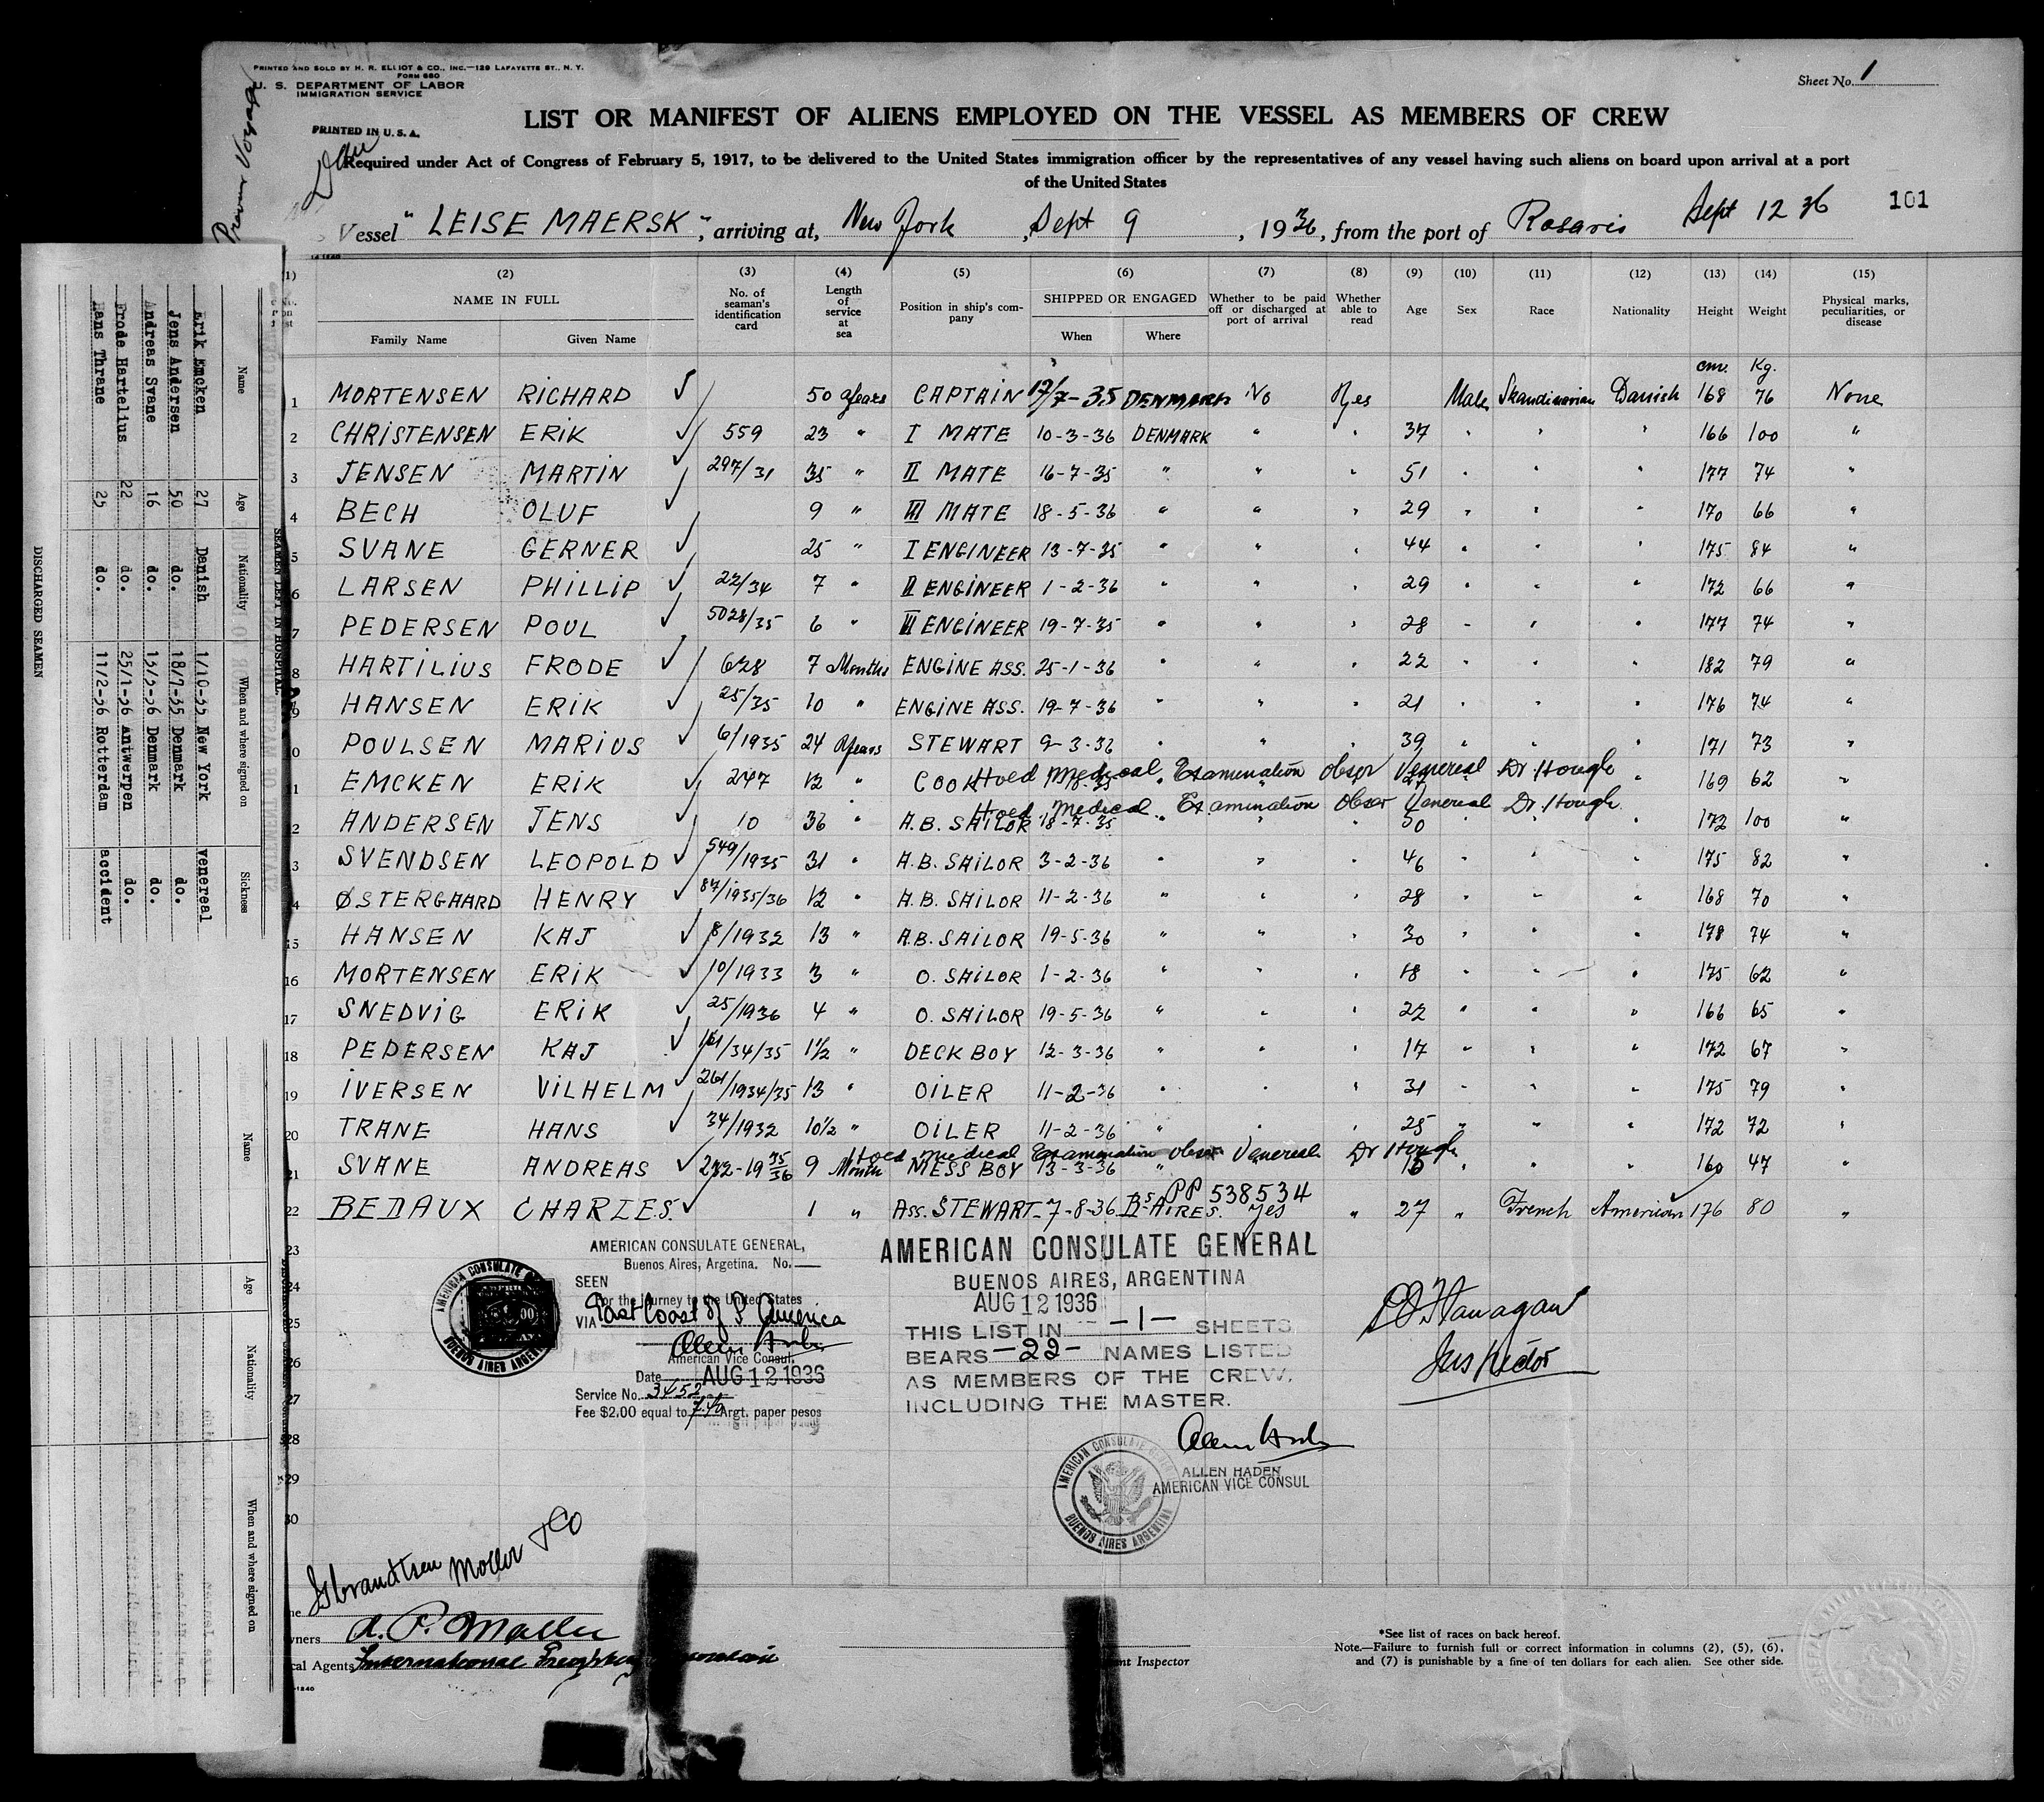 PRINTED AND SOLD BY H. R. ELLIOT & CO., INC.—129 LAFAYETTE ST., N. Y.
FORM 680
U. S. DEPARTMENT OF LABOR
IMMIGRATION SERVICE
PRINTED IN U. S. A.
Sheet No. 1
LIST OR MANIFEST OF ALIENS EMPLOYED ON THE VESSEL AS MEMBERS OF CREW
Required under Act of Congress of February 5, 1917, to be delivered to the United States immigration officer by the representatives of any vessel having such aliens on board upon arrival at a port
of the United States
Vessel "LEISE MAERSK", arriving at, New York, Sept 9, 1936, from the port of Rosario Sept 12 36 101
(1) (2) (3) (4) (5) (6) (7) (8) (9) (10) (11) (12) (13) (14) (15)
NAME IN FULL
Family Name Given Name
No. of seaman's identification card
Length of service at sea
Position in ship's company
SHIPPED OR ENGAGED
When Where
Whether to be paid off or discharged at port of arrival
Whether able to read
Age Sex Race Nationality Height Weight
Physical marks, peculiarities, or disease
cm. Kg.
1 MORTENSEN RICHARD ✓ 50 years CAPTAIN 17/7-35 DENMARK No Yes Male Skandinavian Danish 168 76 None
2 CHRISTENSEN ERIK ✓ 559 23 " I MATE 10-3-36 DENMARK " " 37 " " " 166 100 "
3 JENSEN MARTIN ✓ 297/31 35 " II MATE 16-7-35 " " " 51 " " " 177 74 "
4 BECH OLUF ✓ 9 " III MATE 18-5-36 " " " 29 " " " 170 66 "
5 SVANE GERNER ✓ 25 " I ENGINEER 13-7-35 " " " 44 " " " 175 84 "
6 LARSEN PHILLIP ✓ 22/34 7 " II ENGINEER 1-2-36 " " 29 " " " 172 66 "
7 PEDERSEN POUL ✓ 5028/35 6 " III ENGINEER 19-7-35 " " " 28 " " " 177 74 "
8 HARTILIUS FRODE ✓ 628 7 Months ENGINE ASS. 25-1-36 " " " 22 " " " 182 79 "
9 HANSEN ERIK ✓ 25/35 10 " ENGINE ASS. 19-7-36 " " " 21 " " " 176 74 "
10 POULSEN MARIUS ✓ 6/1935 24 Years STEWART 9-3-36 " " " 39 " " " 171 73 "
Hoed Medical Examination Obser Venereal Dr. Hough
11 EMCKEN ERIK ✓ 247 12 " COOK " 169 62 "
Hoed Medical Examination Obser Venereal Dr. Hough
12 ANDERSEN JENS ✓ 10 36 " A.B. SAILOR 18-7-35 " " " 50 " " " 172 100 "
13 SVENDSEN LEOPOLD ✓ 549/1935 31 " A.B. SAILOR 3-2-36 " " " 46 " " " 175 82 "
14 ØSTERGAARD HENRY ✓ 87/1935/36 12 " A.B. SAILOR 11-2-36 " " " 28 " " " 168 70 "
15 HANSEN KAJ ✓ 8/1932 13 " A.B. SAILOR 19-5-36 " " " 30 " " " 178 74 "
16 MORTENSEN ERIK ✓ 10/1933 3 " O. SAILOR 1-2-36 " " " 18 " " " 175 62 "
17 SNEDVIG ERIK ✓ 25/1936 4 " O. SAILOR 19-5-36 " " " 22 " " " 166 65 "
18 PEDERSEN KAJ ✓ 161/34/35 1½ " DECK BOY 12-3-36 " " " 17 " " " 172 67 "
19 IVERSEN VILHELM ✓ 261/1934/35 13 " OILER 11-2-36 " " " 31 " " " 175 79 "
20 TRANE HANS ✓ 34/1932 10½ " OILER 11-2-36 " " " 25 " " " 172 72 "
Hoed Medical Examination Obser Venereal Dr Hough
21 SVANE ANDREAS ✓ 272-19 35/36 9 Month MESS BOY 13-3-36 " " " " 160 47 "
PP 538534
22 BEDAUX CHARLES. ✓ 1 " Ass. STEWART 7-8-36 Bs AIRES. Yes " 27 " French American 176 80 "
23
24
25
26
27
28
29
30
AMERICAN CONSULATE GENERAL,
Buenos Aires, Argetina. No.—
SEEN
For the journey to the United States
VIA East Coast of S. America
American Vice Consul.
Date AUG 12 1936
Service No. 3452
Fee $2.00 equal to Argt. paper pesos
AMERICAN CONSULATE
BUENOS AIRES ARGENTINA
AMERICAN CONSULATE GENERAL
BUENOS AIRES, ARGENTINA
AUG 12 1936
THIS LIST IN -1- SHEETS
BEARS -22- NAMES LISTED
AS MEMBERS OF THE CREW,
INCLUDING THE MASTER.
Allen Haden
ALLEN HADEN
AMERICAN VICE CONSUL
AMERICAN CONSULATE GENERAL
BUENOS AIRES ARGENTINA
Flanagan
Inspector
Isbrandtsen Moller & Co
owners A. P. Moller
Local Agents International Freighting
Inspector
*See list of races on back hereof.
Note.—Failure to furnish full or correct information in columns (2), (5), (6),
and (7) is punishable by a fine of ten dollars for each alien. See other side.
Previous Voyage
SEAMEN LEFT IN HOSPITAL.
Name Age Nationality When and where signed on Sickness
Erik Emcken 27 Danish 1/10-35 New York venereal
Jens Andersen 50 do. 18/7-35 Denmark do.
Andreas Svane 16 do. 13/3-36 Denmark do.
Frode Hartelius 22 do. 25/1-36 Antwerpen do.
Hans Thrane 25 do. 11/2-36 Rotterdam accident
DISCHARGED SEAMEN
Name Age Nationality When and where signed on